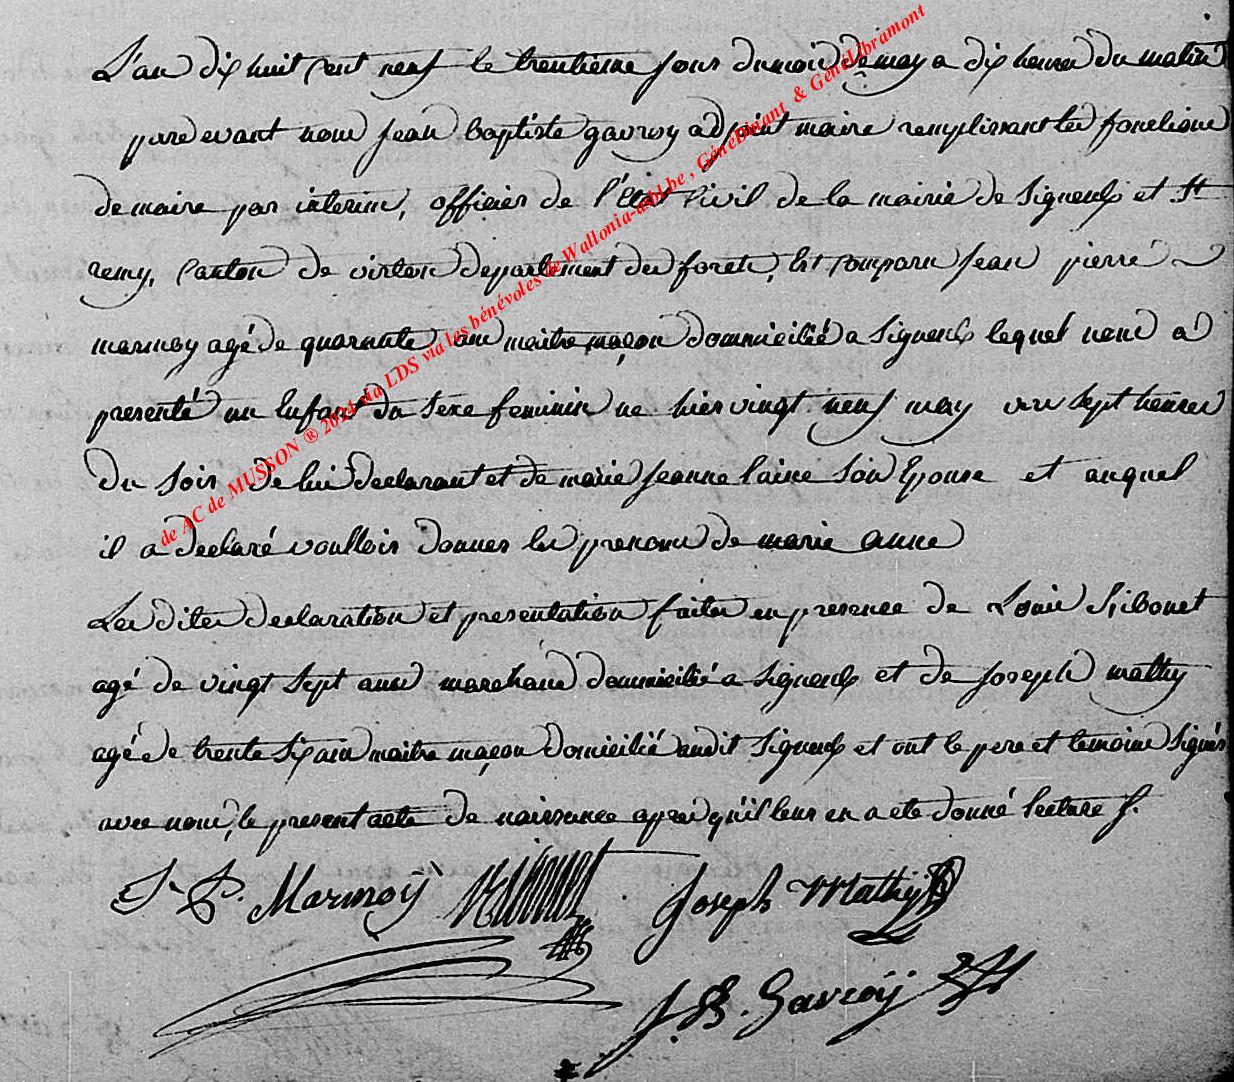 L'an dix huit cent neuf le trentieme jour du mois de may a dix heures du matin
pardevant nous Jean baptiste gavroy adjoint maire remplissant les fonctions
de maire par interim, officier de l'Etat Civil de la mairie de Signeulx et St
remy, Canton de virton departement des forets, Est comparu Jean pierre
marmoy agé de quarante ans maitre maçon domicilié a Signeulx lequel nous a
presenté un Enfant du Sexe feminin ne hier vingt neuf may vers Sept heures
du Soir de lui declarant et de marie Jeanne laine Son Epouse et auquel
il a declaré voulloir donner les prenoms de marie anne
Les dites declaration et presentation faites en presence de Louis
agé de vingt Sept ans marchand domicilié a Signeulx et de Joseph mathy
agé de trente Six ans maitre maçon domicilié audit Signeulx et ont le pere et temoins Signés
avec nous, le present acte de naissance apres qu'il leur en a ete donné lecture
J. P. Marmoÿ Joseph Mathÿ
J. B. Gavroÿ
de AC de MUSSON ® 2024 via LDS via les bénévoles de Wallonia-asbl.be , GénéDinant & GénéLibramont